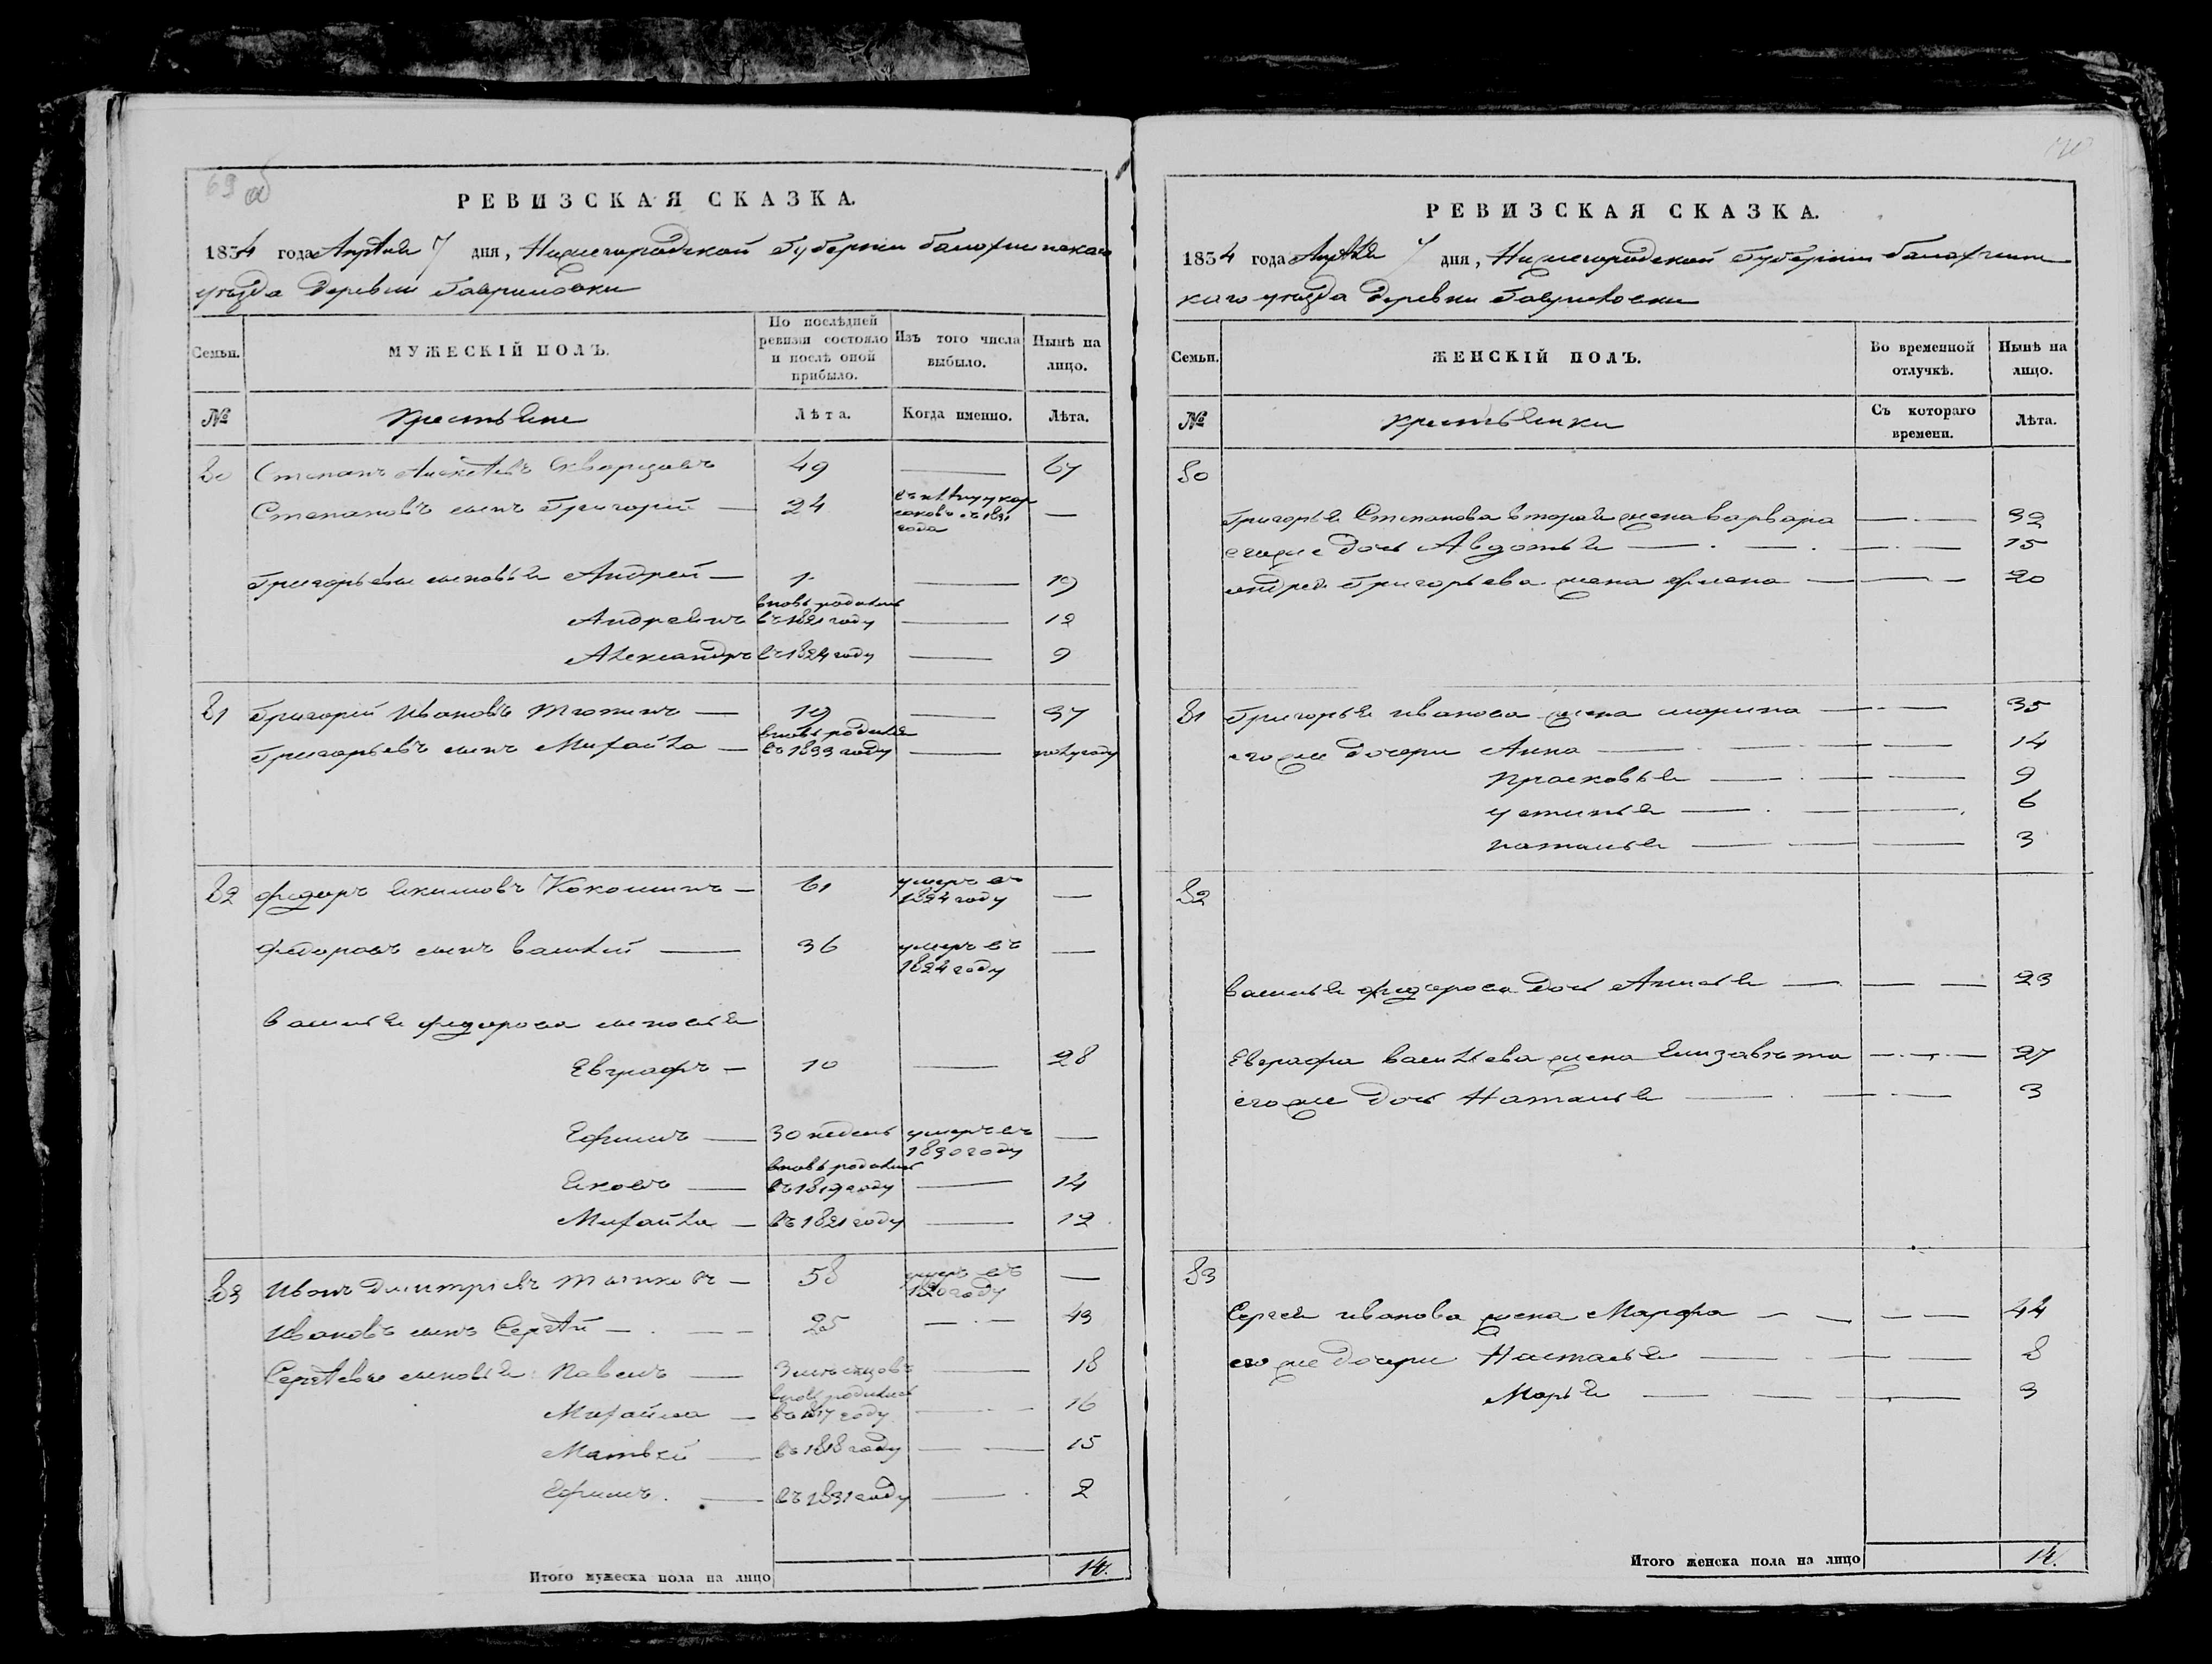 69 об
РЕВИЗСКАЯ СКАЗКА.
1834 года Апрѣля 7 дня, Нижегородской губернии балахнинскаго
уезда деревни Гавриловки
Семьи. МУЖЕСКІЙ ПОЛЪ. По послѣдней ревизіи состояло и послѣ оной прибыло. Изъ того числа выбыло. Нынѣ на лицо.
№ крестьяне Лѣта. Когда именно. Лѣта.
80 Степанъ Алексѣевъ Скворцовъ 49 — 67
Степановъ сынъ Григорий — 24 года —
Григорьевы сыновья Андрей — 1 — 19
Андреянъ вновь родился въ 1821 году — 12
Александръ въ 1824 году — 9
81 Григорий Ивановъ — 19 — 37
Григорьевъ сынъ Михайла — вновь родился въ 1833 году — полугоду
82 федоръ Якимовъ Кокошинъ — 61 умеръ въ 1824 году —
Федоровъ сынъ василий — 36 умеръ въ 1824 году —
василья федорова сыновья
Евграфъ — 10 — 28
Ефимъ — 30 недель умеръ въ 1830 году —
Яковъ — вновь родился въ 1819 году — 14
Михайла — въ 1821 году — 12
83 Иванъ Дмитріевъ — 58 умеръ въ 1820 году —
Ивановъ сынъ Сергѣй — 25 — 43
Сергѣевы сыновья Павелъ — 3 месяцовъ — 18
Михайла — вновь родился во 1817 году — 16
Матвей — въ 1818 году — 15
Ефимъ — въ 1831 году — 2
Итого мужеска пола на лицо 14.
РЕВИЗСКАЯ СКАЗКА.
1834 года Апрѣля 7 дня, Нижегородской губернии балахнин
каго уезда деревни Гавриловки
Семьи. ЖЕНСКІЙ ПОЛЪ. Во временной отлучкѣ. Нынѣ на лицо.
№ крестьянки Съ котораго времени. Лѣта.
80
Григорья Степанова вторая жена варвара — 32
егоже дочь Авдотья — 15
андрея Григорьева жена — 20
81 Григорья иванова жена марина — 35
егоже дочери Анна — 14
прасковья — 9
устинья — 6
наталья — 3
82
василья федорова дочь — 23
Евграфа васильева жена Елизавета — 27
егоже дочь Наталья — 3
83
Сергея иванова жена Марфа — 44
егоже дочери Наталья — 8
Марья — 3
Итого женска пола на лицо 14.